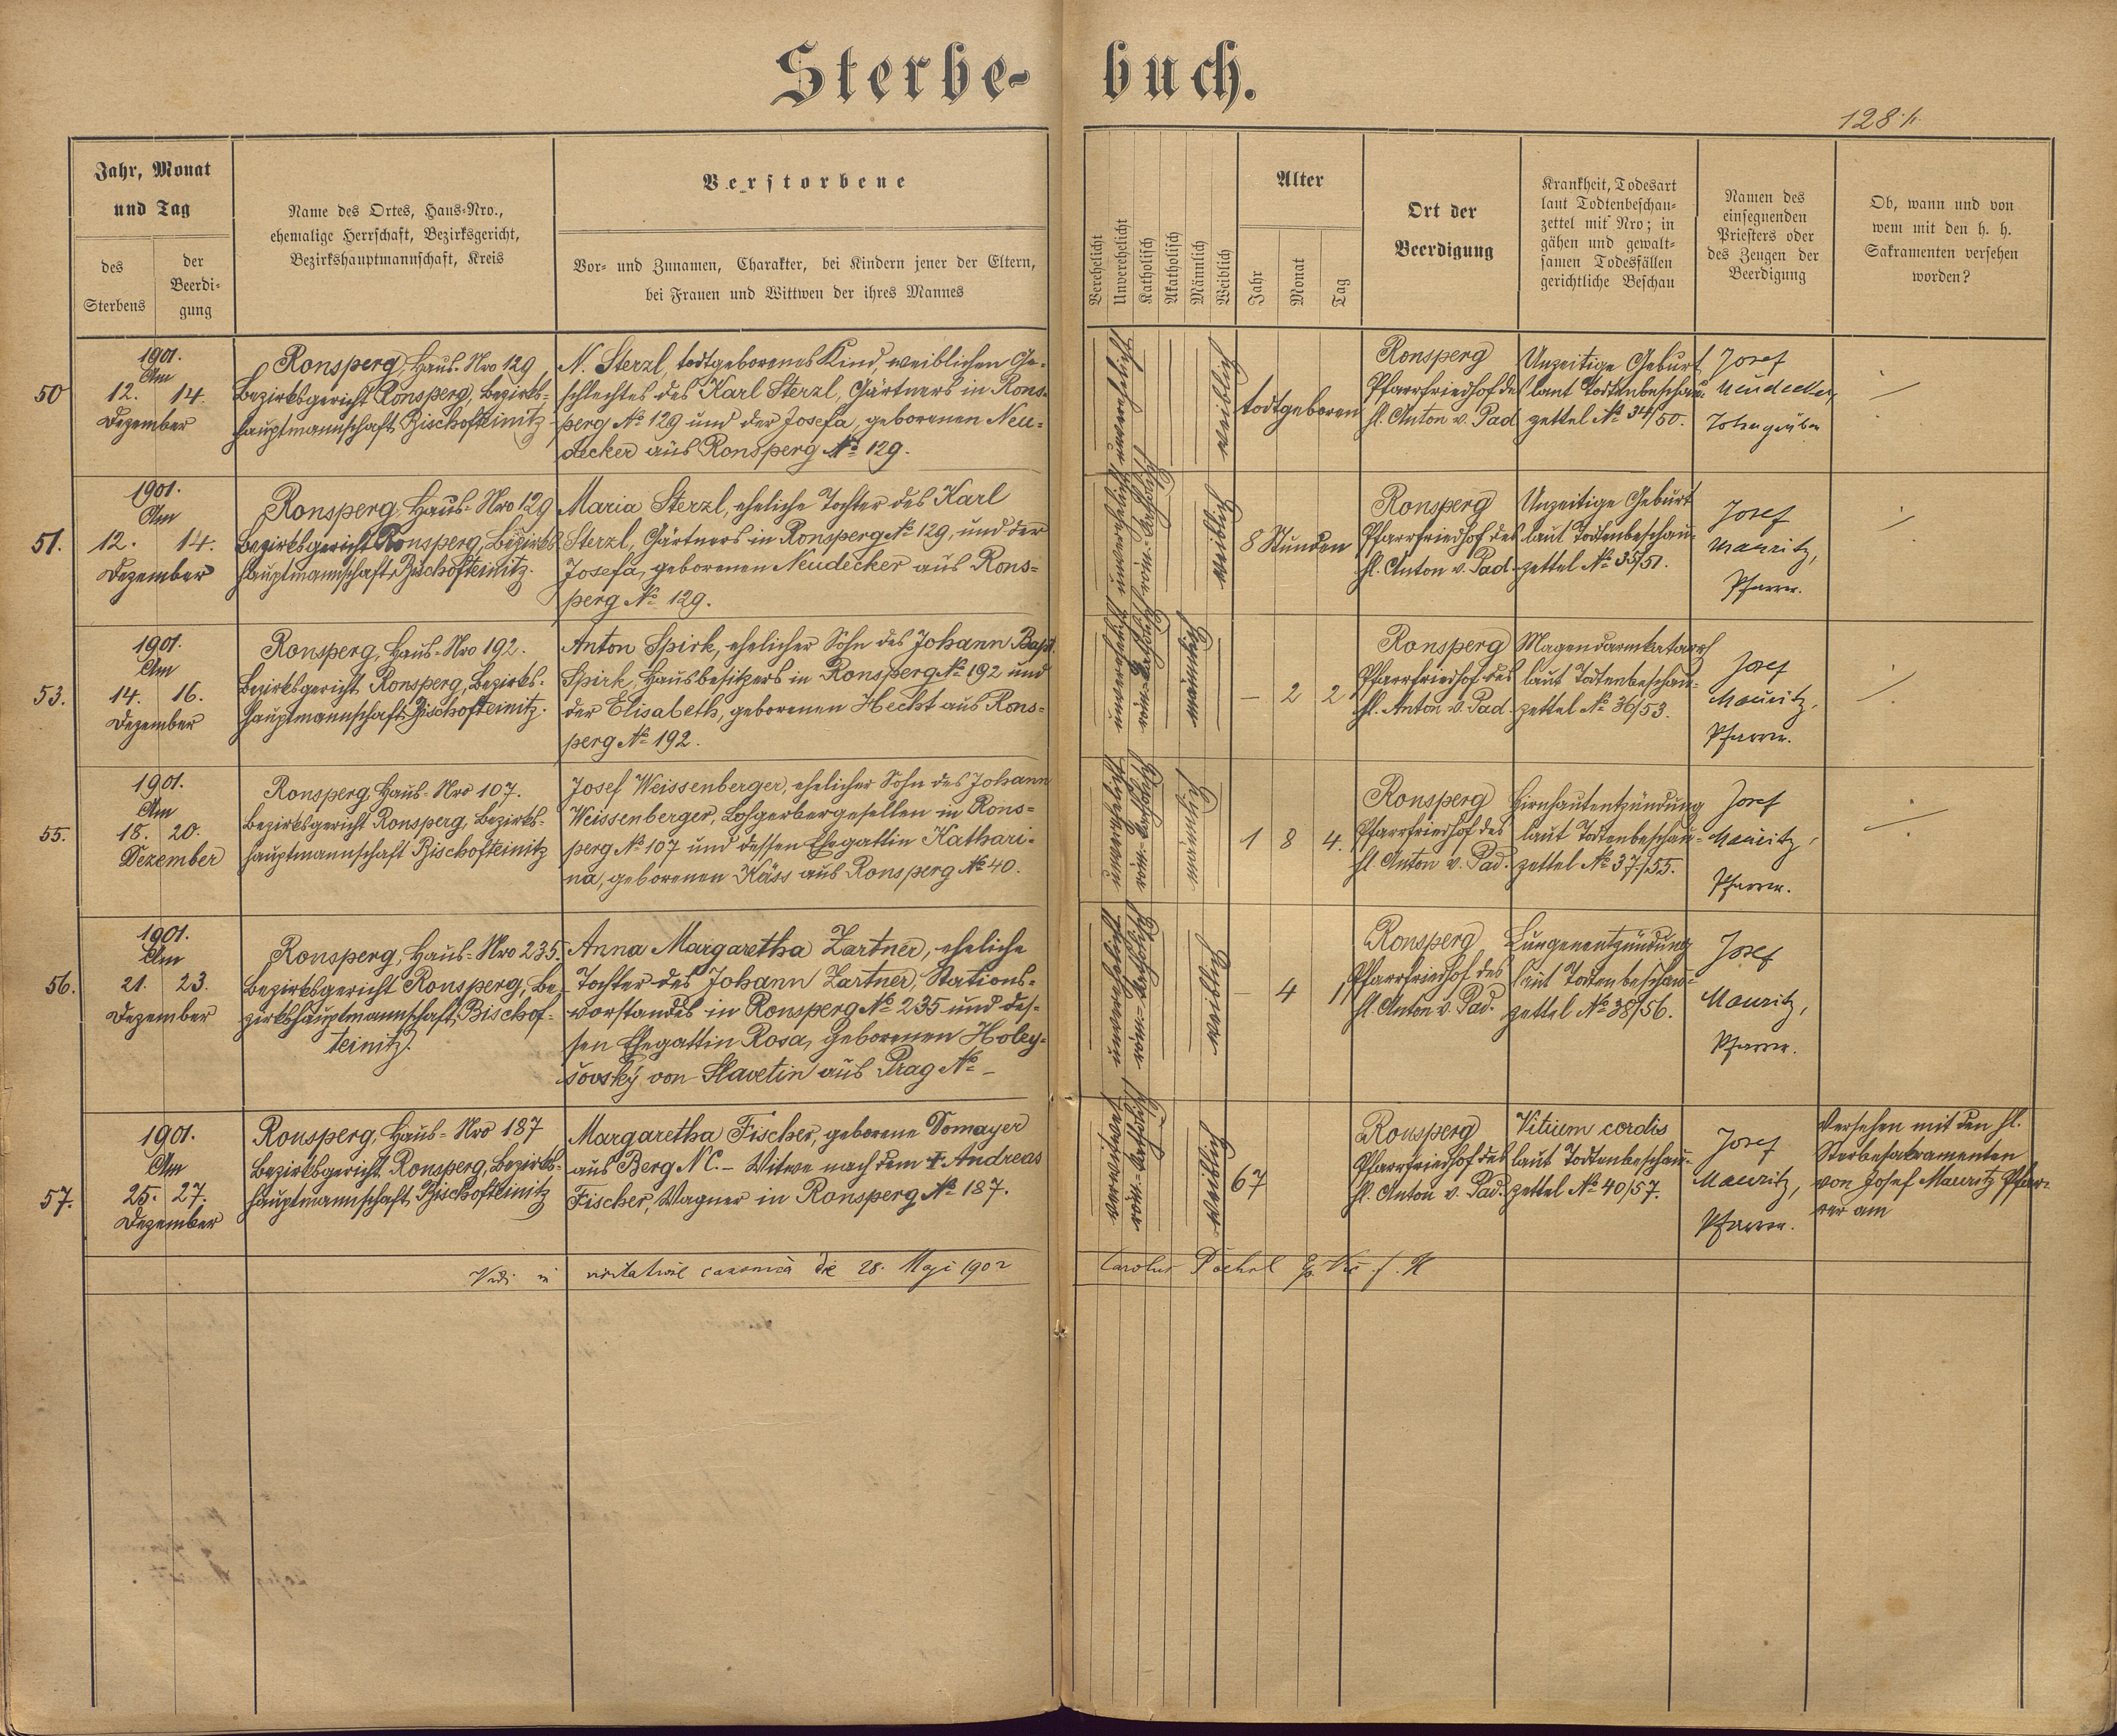 Sterbe-buch.
128./.
Jahr, Monat
und Tag
des
Sterbens
der
Beerdi-
gung
Name des Ortes, Haus-Nro.,
ehemalige Herrschaft, Bezirksgericht,
Bezirkshauptmannschaft, Kreis
Verstorbene
Vor- und Zunamen, Charakter, bei Kindern jener der Eltern,
bei Frauen und Wittwen der ihres Mannes
Verehelicht
Unverehelicht
Katholisch
Akatholisch
Männlich
Weiblich
Alter
Jahr
Monat
Tag
Ort der
Beerdigung
Krankheit, Todesart
laut Todtenbeschau-
zettel mit Nro; in
gähen und gewalt-
samen Todesfällen
gerichtliche Beschau
Namen des
einsegnenden
Priesters oder
des Zeugen der
Beerdigung
Ob, wann und von
wem mit den h. h.
Sakramenten versehen
worden?
50
1901.
Am
12. 14.
Dezember
Ronsperg, Haus-Nro 129,
Bezirksgericht Ronsperg, Bezirks-
hauptmannschaft Bischofteinitz
N. Sterzl, todtgeborenes Kind, weiblichen Ge-
schlechtes des Karl Sterzl, Gärtners in Rons-
perg No 129 und der Josefa, geborenen Neu-
decker aus Ronsperg No 129.
unverehelicht
weiblich
todtgeboren
Ronsperg
Pfarrfriedhof des
hl. Anton v. Pad.
Unzeitige Geburt
laut Todtenbeschau-
zettel No 34/50.
Josef
Neudecker,
Todtengräber
51.
1901.
Am
12. 14.
Dezember
Ronsperg, Haus-Nro 129
Bezirksgericht Ronsperg, Bezirks-
hauptmannschaft Bischofteinitz.
Maria Sterzl, eheliche Tochter des Karl
Sterzl, Gärtners in Ronsperg No 129, und der
Josefa, geborenen Neudecker aus Rons-
perg No 129.
unverehelicht
röm.-kathol.
weiblich
8 Stunden
Ronsperg
Pfarrfriedhof des
hl. Anton v. Pad.
Unzeitige Geburt
laut Todtenbeschau-
zettel No 35/51.
Josef
Mauritz,
Pfarrer.
53.
1901.
Am
14. 16.
Dezember
Ronsperg, Haus-Nro 192.
Bezirksgericht Ronsperg, Bezirks-
hauptmannschaft Bischofteinitz.
Anton Spirk, ehelicher Sohn des Johann Bapt.
Spirk, Hausbesitzers in Ronsperg No 192 und
der Elisabeth, geborenen Hecht aus Rons-
perg No 192.
unverehelicht
röm.-kathol.
männlich
– 2 2
Ronsperg
Pfarrfriedhof des
hl. Anton v. Pad.
Magendarmkatarrh
laut Todtenbeschau-
zettel No 36/53.
Josef
Mauritz,
Pfarrer.
55.
1901.
Am
18. 20.
Dezember
Ronsperg, Haus-Nro 107.
Bezirksgericht Ronsperg, Bezirks-
hauptmannschaft Bischofteinitz
Josef Weissenberger, ehelicher Sohn des Johann
Weissenberger, Lohgerbergesellen in Rons-
perg No 107 und dessen Ehegattin Kathari-
na, geborenen Käss aus Ronsperg No 40.
unverehelicht
röm.-kathol.
männlich
1 8 4.
Ronsperg
Pfarrfriedhof des
hl. Anton v. Pad.
Hirnhautentzündung
laut Todtenbeschau-
zettel No 37/55.
Josef
Mauritz,
Pfarrer.
56.
1901.
Am
21. 23.
Dezember
Ronsperg, Haus-Nro 235.
Bezirksgericht Ronsperg, Be-
zirkshauptmannschaft Bischof-
teinitz.
Anna Margaretha Zartner, eheliche
Tochter des Johann Zartner, Stations-
vorstandes in Ronsperg No 235 und des-
sen Ehegattin Rosa, geborenen Holey-
šovský von Slavetin aus Prag No –
unverehelicht
röm.-kathol.
weiblich
– 4 1
Ronsperg
Pfarrfriedhof des
hl. Anton v. Pad.
Lungenentzündung
laut Todtenbeschau-
zettel No 38/56.
Josef
Mauritz,
Pfarrer.
57.
1901.
Am
25. 27.
Dezember
Ronsperg, Haus-Nro 187
Bezirksgericht Ronsperg, Bezirks-
hauptmannschaft Bischofteinitz
Margaretha Fischer, geborene Domayer
aus Berg NC. – Witwe nach dem † Andreas
Fischer, Wagner in Ronsperg No 187.
verwitwet
röm.-kathol.
weiblich
67
Ronsperg
Pfarrfriedhof des
hl. Anton v. Pad.
Vitium cordis
laut Todtenbeschau-
zettel No 40/57.
Josef
Mauritz,
Pfarrer.
Versehen mit den hl.
Sterbesakramenten
von Josef Mauritz Pfar-
rer am
Vidi in visitatione canonica die 28. Maji 1902 Carolus